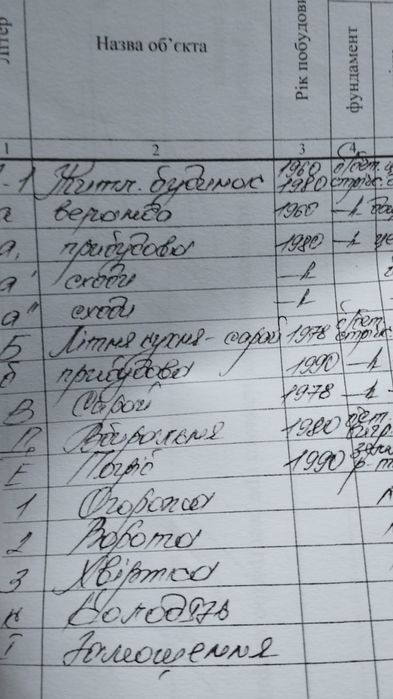 Літер
Назва об'єкта
Рік побудови
фундамент
1 2 3 4
-1 Житл. будинок 1960 1980
а веранда 1960 —"—
а, прибудова 1980 —"—
а' сходи —"—
а" сходи —"—
Б Літня кухня-сарай 1978
б прибудова 1990 —"—
В Сарай 1978 —"—
Вбиральня 1980
Е Погріб 1990
1 Огорожа
2 Ворота
3 Хвіртка
к Колодязь
I Замощення